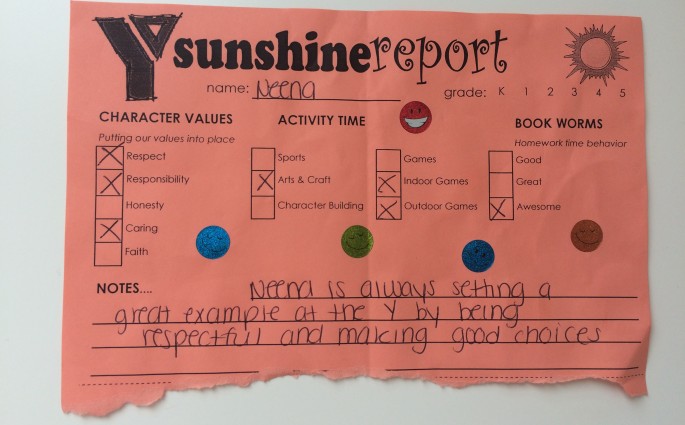 Y sunshine report
name: Neena grade: K 1 2 3 4 5
CHARACTER VALUES
Putting our values into place
Respect
Responsibility
Honesty
Caring
Faith
ACTIVITY TIME
Sports
Arts & Craft
Character Building
Games
Indoor Games
Outdoor Games
BOOK WORMS
Homework time behavior
Good
Great
Awesome
NOTES.... Neena is always setting a
great example at the Y by being
respectful and making good choices